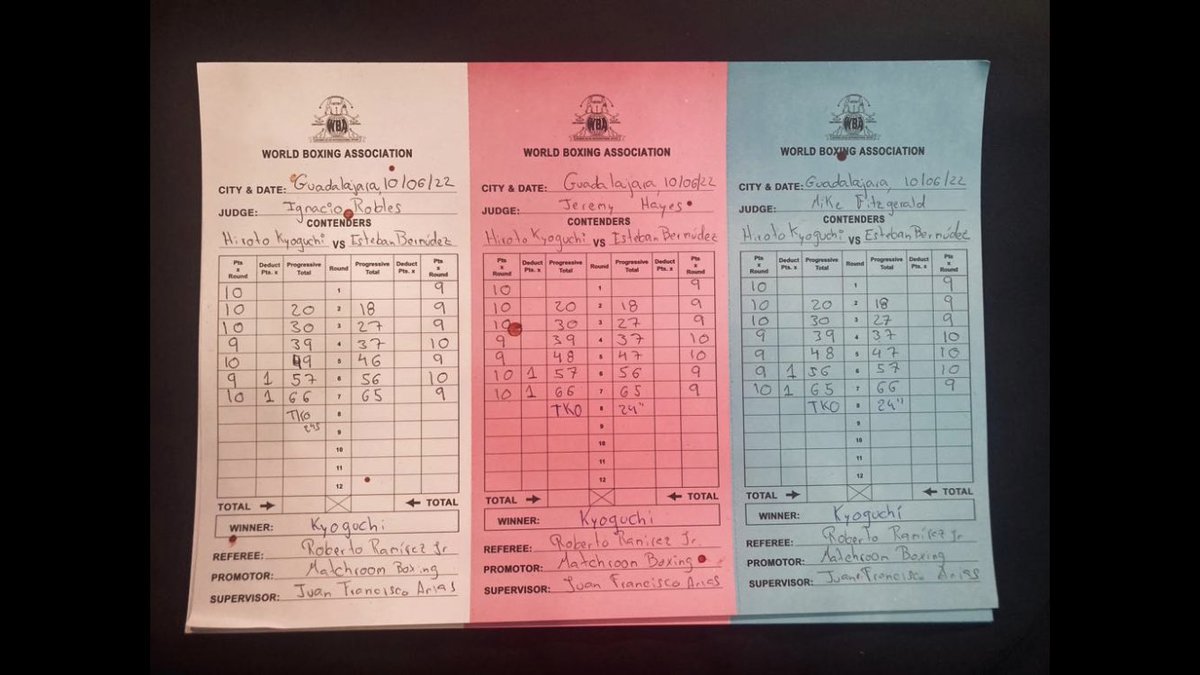 WBA
WORLD BOXING ASSOCIATION
CITY & DATE: Guadalajara, 10/06/22
JUDGE: Ignacio Robles
CONTENDERS
Hiroto Kyoguchi VS Esteban Bernúdez
Pts x Round Deduct Pts. x Progressive Total Round Progressive Total Deduct Pts. x Pts x Round
10 1 9
10 20 2 18 9
10 30 3 27 9
9 39 4 37 10
10 49 5 46 9
9 1 57 6 56 10
10 1 66 7 65 9
TKO 8
245 9
10
11
12
TOTAL TOTAL
WINNER: Kyoguchi
REFEREE: Roberto Ramírez Jr
PROMOTOR: Matchroom Boxing
SUPERVISOR: Juan Francisco Arias
WBA
WORLD BOXING ASSOCIATION
CITY & DATE: Guadalajara, 10/06/22
JUDGE: Jeremy Hayes
CONTENDERS
Hiroto Kyoguchi VS Esteban Bernúdez
Pts x Round Deduct Pts. x Progressive Total Round Progressive Total Deduct Pts. x Pts x Round
10 1 9
10 20 2 18 9
10 30 3 27 9
9 39 4 37 10
9 48 5 47 10
10 1 57 6 56 9
10 1 66 7 65 9
TKO 8 24"
9
10
11
12
TOTAL TOTAL
WINNER: Kyoguchi
REFEREE: Roberto Ramirez Jr.
PROMOTOR: Matchroom Boxing
SUPERVISOR: Juan Francisco Arias
WBA
WORLD BOXING ASSOCIATION
CITY & DATE: Guadalajara, 10/06/22
JUDGE: Mike Fitzgerald
CONTENDERS
Hiroto Kyoguchi VS Esteban Bernúdez
Pts x Round Deduct Pts. x Progressive Total Round Progressive Total Deduct Pts. x Pts x Round
10 1 9
10 20 2 18 9
10 30 3 27 9
9 39 4 37 10
9 48 5 47 10
9 1 56 6 57 10
10 1 65 7 66 9
TKO 8 24"
9
10
11
12
TOTAL TOTAL
WINNER: Kyoguchi
REFEREE: Roberto Ramirez Jr
PROMOTOR: Matchroom Boxing
SUPERVISOR: Juan Francisco Arias